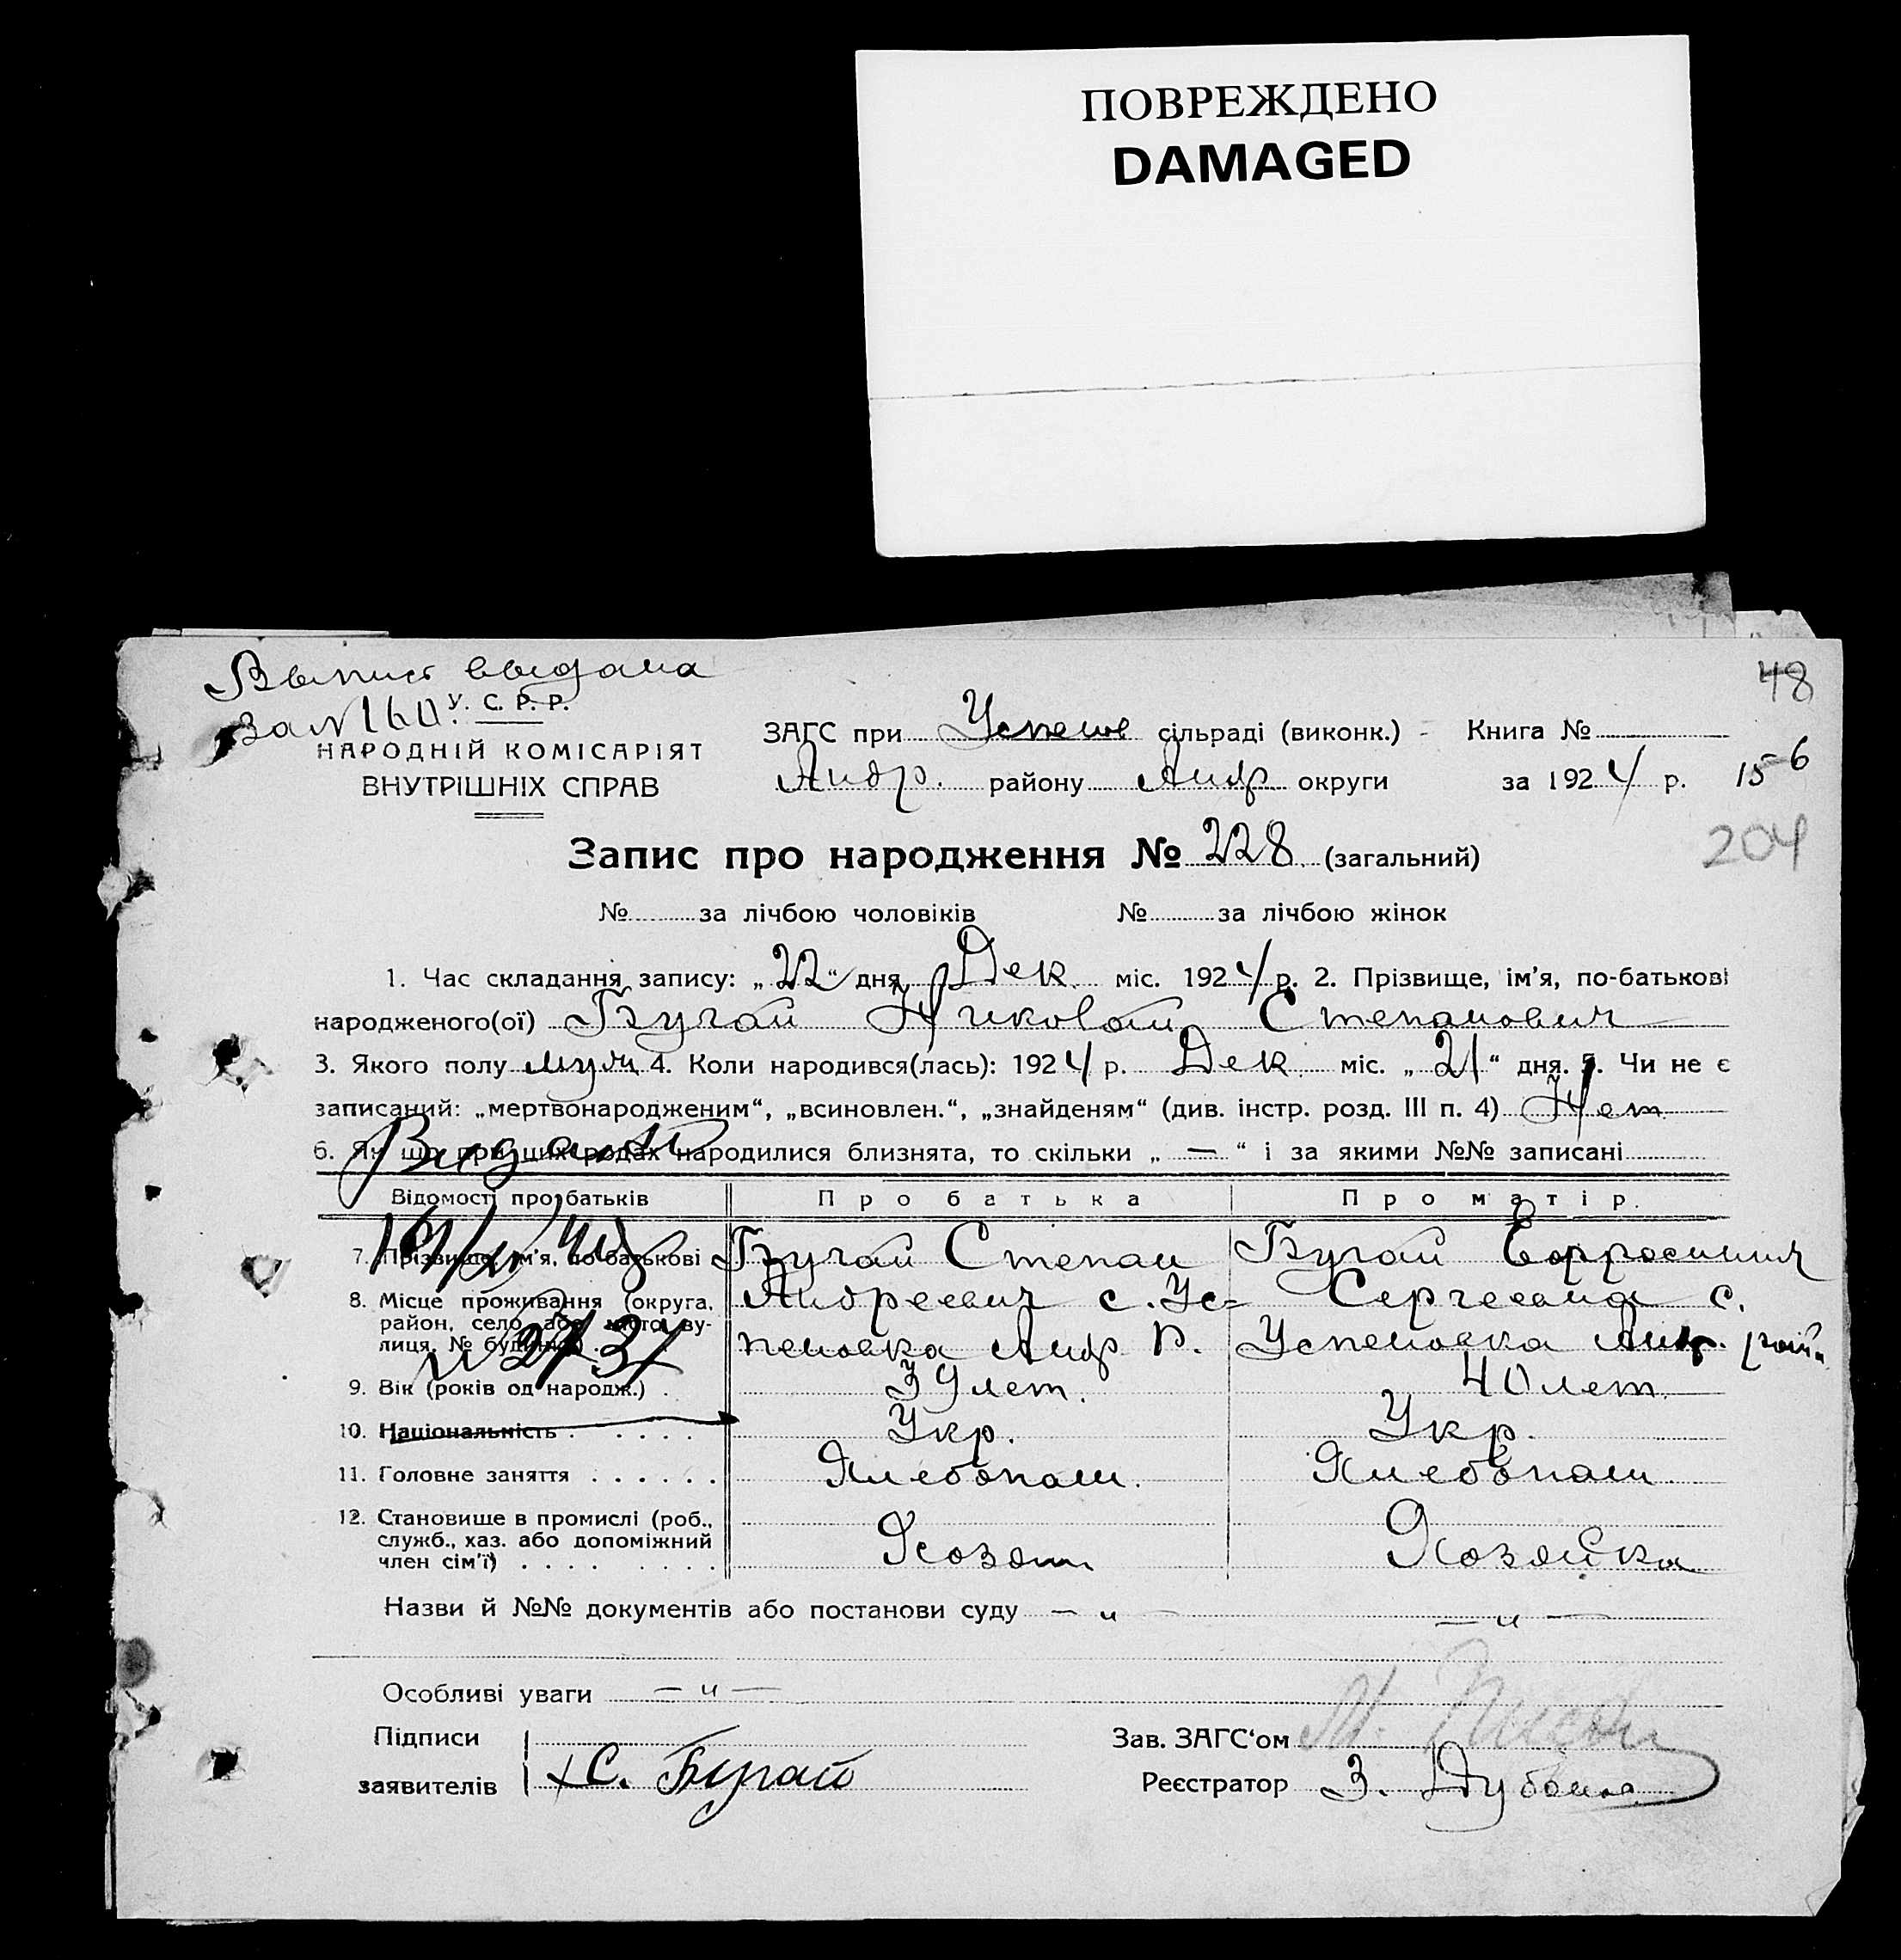 ПОВРЕЖДЕНО
DAMAGED
Выпись выдана
48
за № 160.
У. С. Р. Р.
НАРОДНІЙ КОМІСАРІЯТ
ВНУТРІШНІХ СПРАВ
ЗАГС при Успенов сільраді (виконк.) - Книга №
Андр. району округи за 1924 р. 156
Запис про народження № 228 (загальний)
204
№ за лічбою чоловіків № за лічбою жінок
1. Час складання запису: „22“ дня Дек. міс. 1924 р. 2. Прізвище, ім’я, по-батькові
народженого(ої) Бугай Николай Степанович
3. Якого полу муж 4. Коли народився(лась): 1924 р. Дек. міс. „21“ дня. 5. Чи не є
записаний: „мертвонародженим“, „всиновлен.“, „знайденям“ (див. інстр. розд. III п. 4) Нет
6. Як що при цих родах народилися близнята, то скільки „ — “ і за якими №№ записані
Відомості про батьків Про батька Про матір.
7. Прізвище, ім’я, по-батькові Бугай Степан Бугай
8. Місце проживання (округа, Андреевич с. Ус= Сергеевна с.
район, село або місто, ву-
лиця, № будинка) пеновка р. Успеновка
9. Вік (років од народж.) . 39 лет. 40 лет.
10. Національність . . . . . Укр. Укр.
11. Головне заняття . . . . . . Хлебопаш. Хлебопаш.
12. Становище в промислі (роб.,
служб., хаз. або допоміжний
член сім’ї) . . . . . . . . Хозяин Хозяйка
Назви й №№ документів або постанови суду — „ — — „ —
Особливі уваги — „ —
Підписи
заявителів С. Бугай
Зав. ЗАГС‘ом
Реєстратор З.